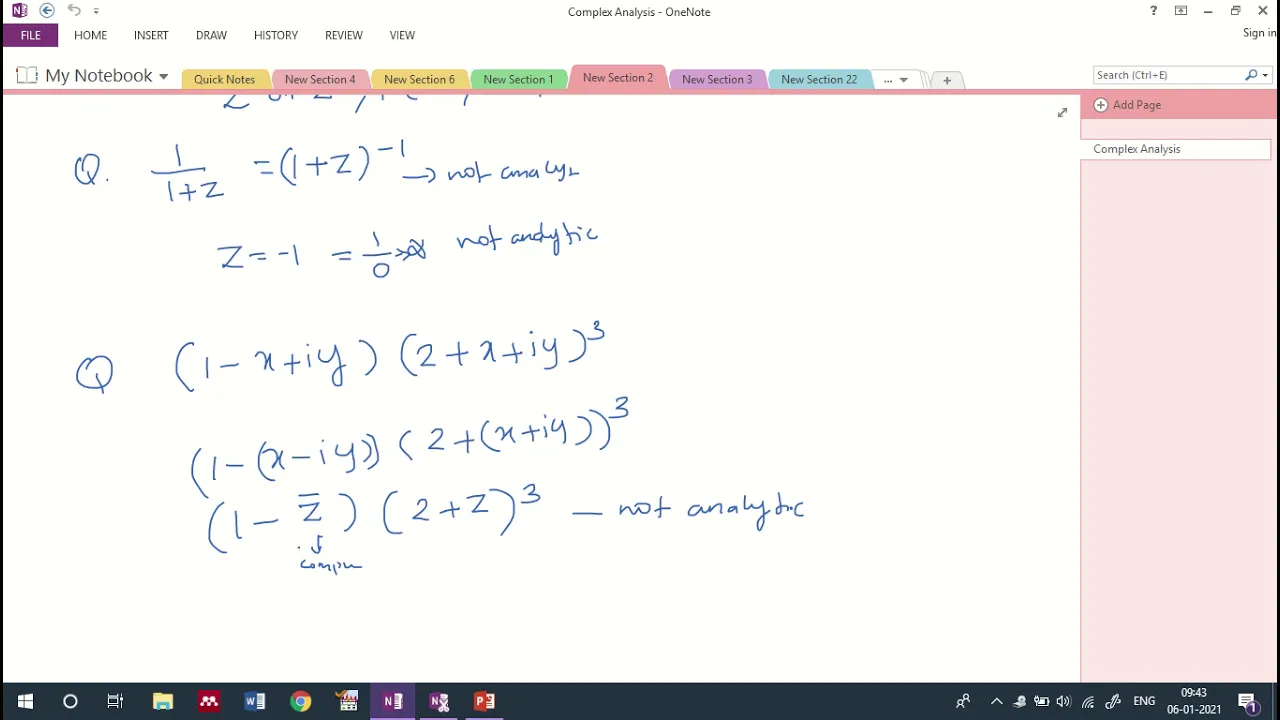 Complex Analysis - OneNote
Sign in
FILE HOME INSERT DRAW HISTORY REVIEW VIEW
My Notebook Quick Notes New Section 4 New Section 6 New Section 1 New Section 2 New Section 3 New Section 22 ... +
Search (Ctrl+E)
Add Page
Complex Analysis
Q. 1/(1+z) = (1+z)^-1 → not analy
z = -1 = 1/0 → ∞ not analytic
Q (1-x+iy) (2+x+iy)^3
(1-(x-iy)) (2+(x+iy))^3
(1-z̅) (2+z)^3 — not analytic
ENG 09:43
06-01-2021